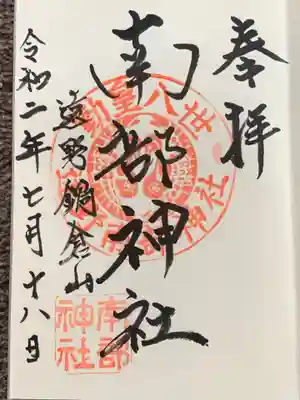 奉拝
南部神社
遠野鍋倉山
令和二年七月十八日
勤皇八世
南部
神社